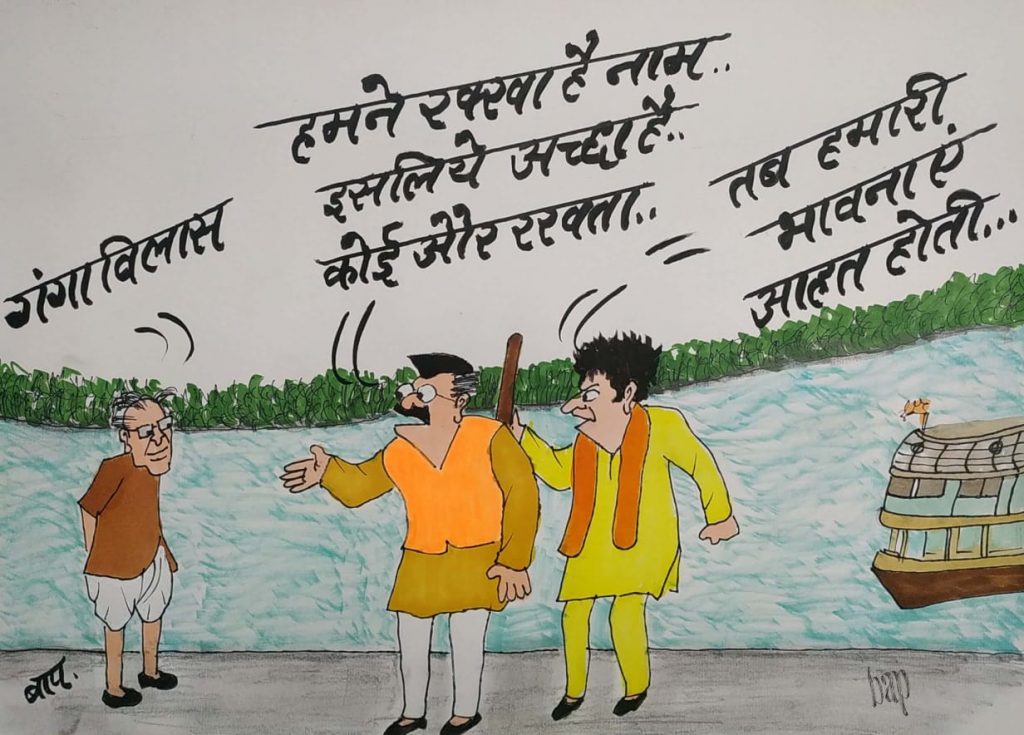 गंगा विलास
हमने रक्खा है नाम..
इसलिये अच्छा है..
कोई और रखता..
तब हमारी
भावनाएं
आहत होती...
बाप.
bap